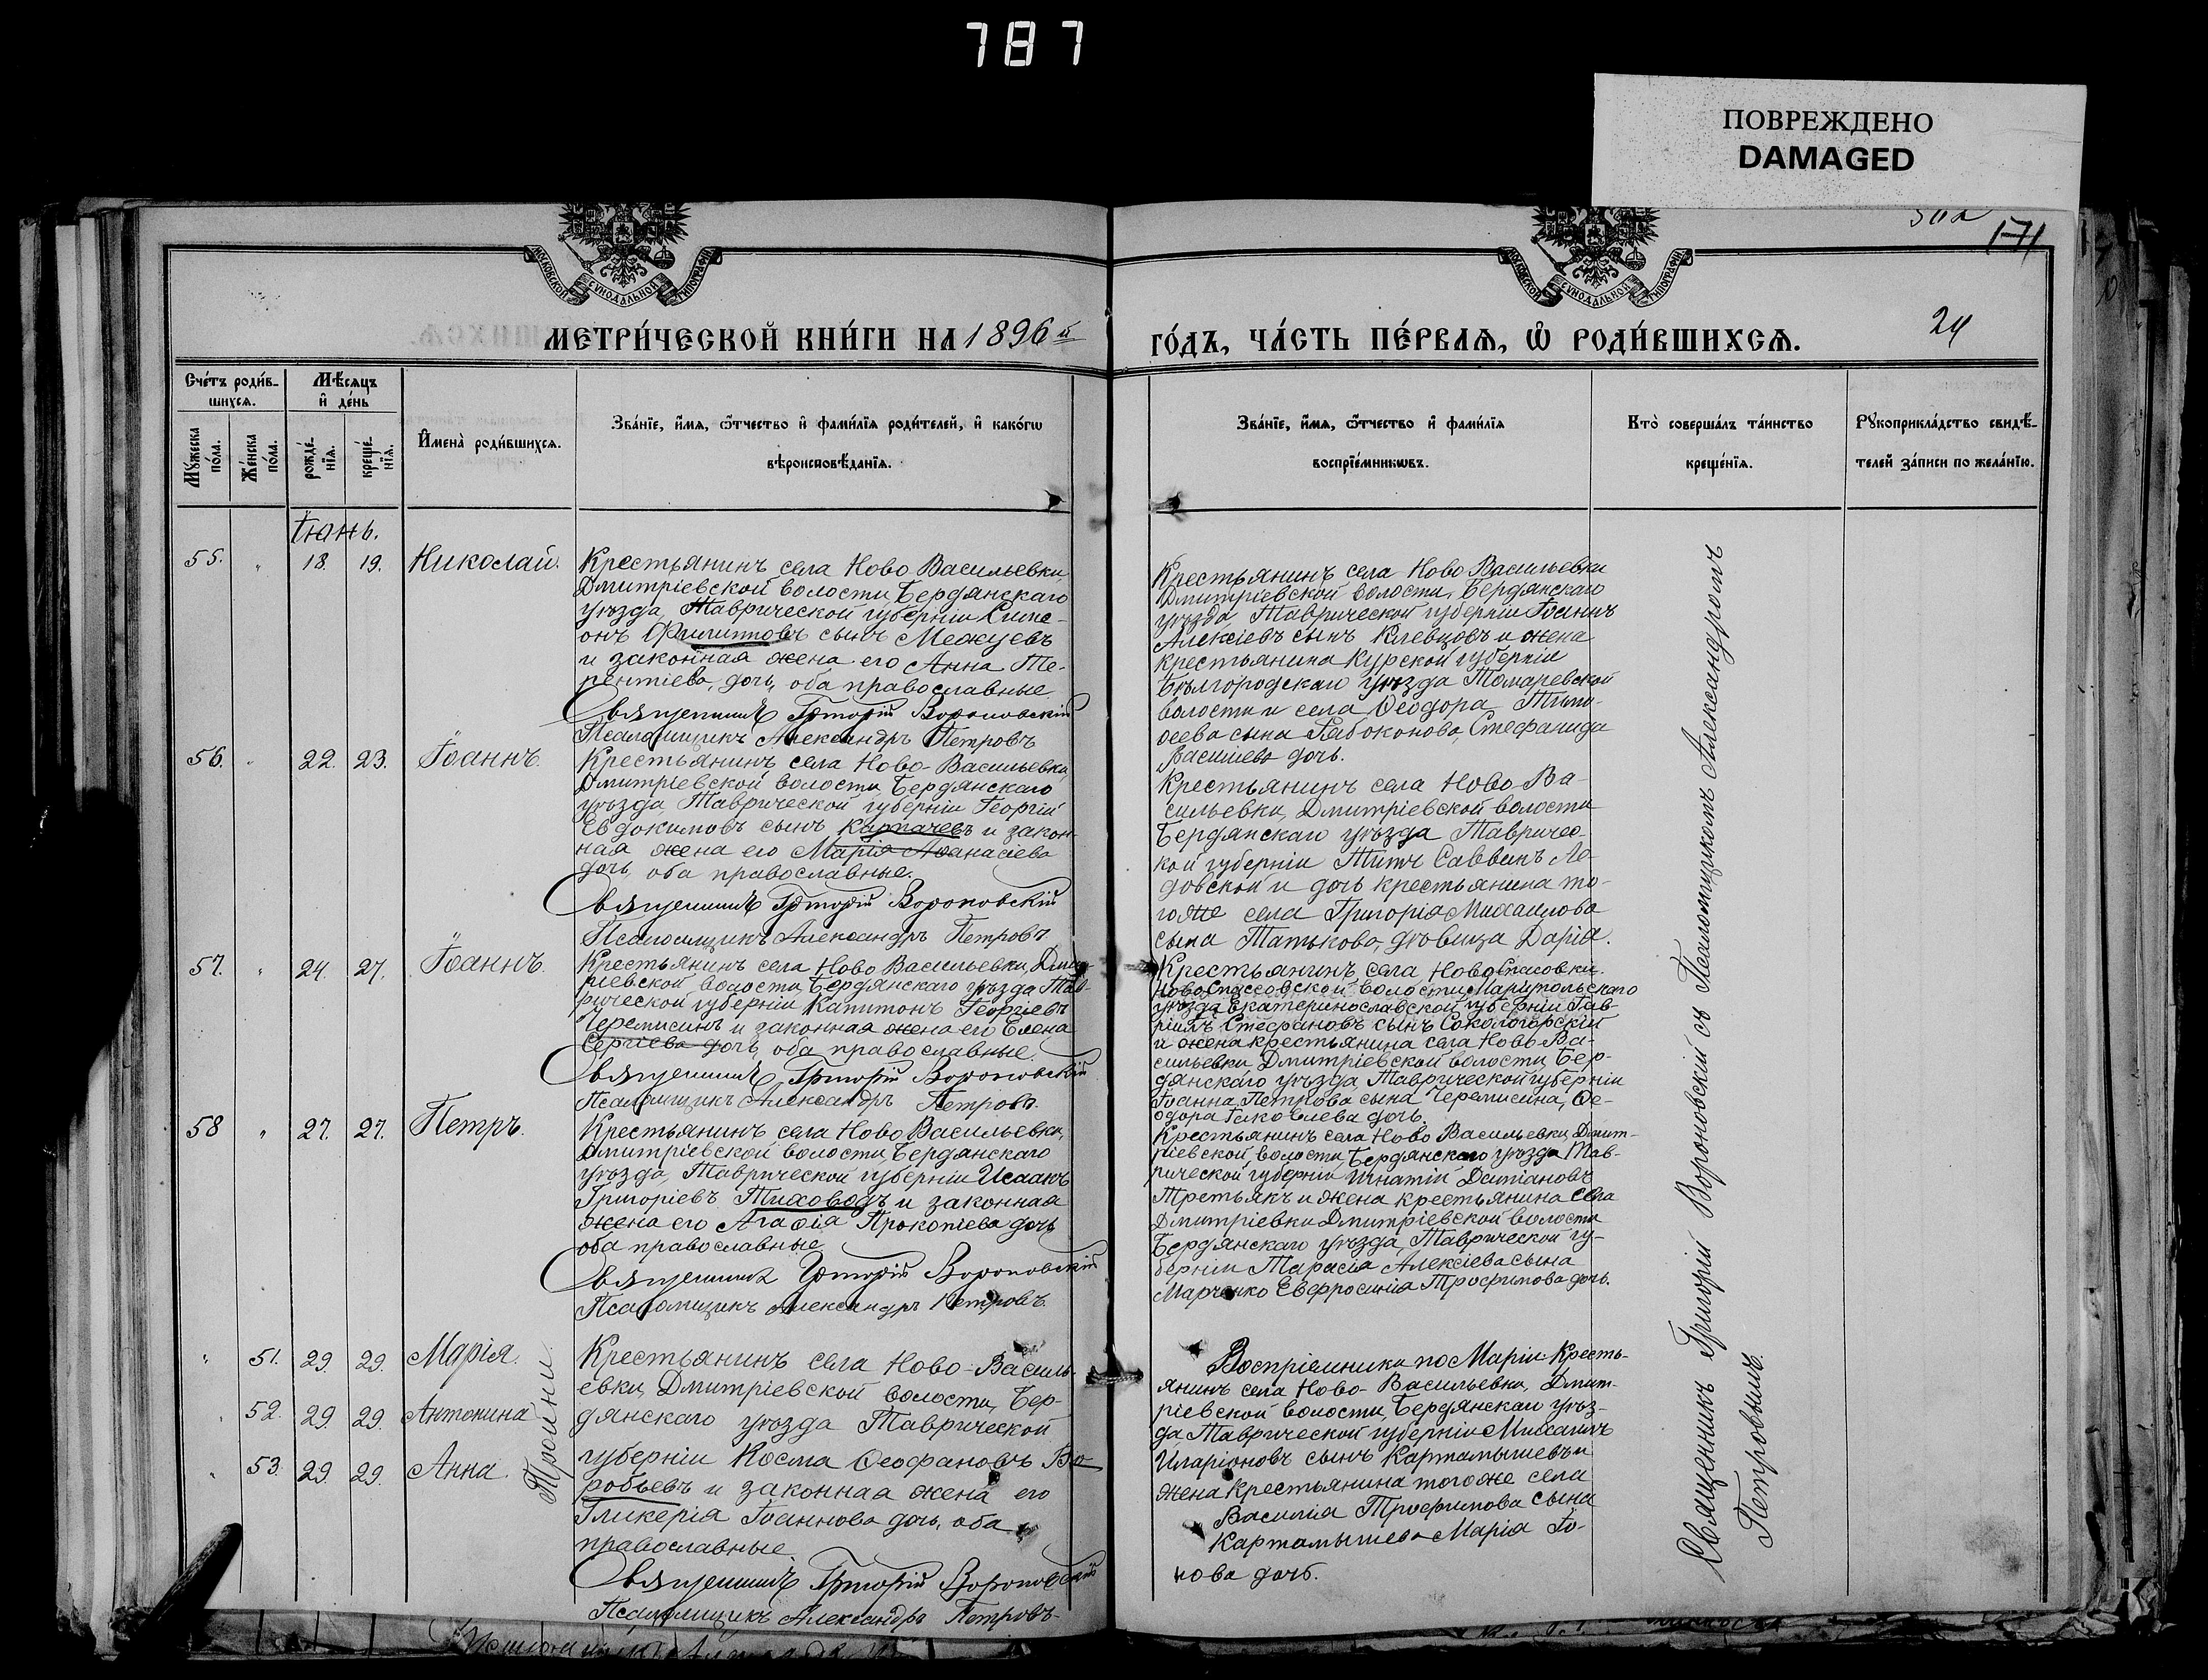 787
ПОВРЕЖДЕНО
DAMAGED
171
МОСКОВСКОЙ СУНОДАЛЬНОЙ ТИПОГРАФІИ
МОСКОВСКОЙ СУНОДАЛЬНОЙ ТИПОГРАФІИ
МЕТРИ́ЧЕСКОЙ КНИ́ГИ НА 1896 й
ГО́ДЪ, ЧА́СТЬ ПЕ́РВАѦ, Ѡ҆ РОДИ́ВШИХСѦ.
24
Сче́тъ роди́в-
шихсѧ.
Мѣ́сѧцъ
и҆ де́нь
Му́жеска по́ла.
Же́нска по́ла.
рожде́-
нїѧ.
креще́-
нїѧ.
И҆мена̀ роди́вшихсѧ.
Зва́нїе, и҆́мѧ, ѻ҆́тчество и҆ фами́лїѧ роди́телей, и҆ како́гѡ
вѣроисповѣ́данїѧ.
Зва́нїе, и҆́мѧ, ѻ҆́тчество и҆ фами́лїѧ
воспрїе́мникѡвъ.
Кто̀ соверша́лъ та́инство
креще́нїѧ.
Рꙋкоприкла́дство свидѣ́-
телей за́писи по жела́нїю.
Іюнь.
55. " 18. 19. Николай.
Крестьянинъ села Ново Васильевки,
Дмитріевской волости, Бердянскаго
уѣзда, Таврической губерніи Симе-
онъ Филипповъ сынъ Межуевъ
и законная жена его Анна Те-
рентіева дочь, оба православные.
Священникъ Григорій Вороновскій
Псаломщикъ Александръ Петровъ
Крестьянинъ села Ново Васильевки
Дмитріевской волости, Бердянскаго
уѣзда, Таврической губерніи Іоаннъ
Алексіевъ сынъ Клевцовъ и жена
крестьянина Курской губерніи
Бѣлгородскаго уѣзда Томаревской
волости и села Ѳеодора Тимо-
ѳеева сына Рябоконова, Стефанида
Васильева дочь.
56. " 22. 23. Іоаннъ.
Крестьянинъ села Ново-Васильевки,
Дмитріевской волости, Бердянскаго
уѣзда Таврической губерніи Георгій
Евдокимовъ сынъ Карпачевъ и закон-
ная жена его Марія Аѳанасіева
дочь, оба православные.
Священникъ Григорій Вороновскій
Псаломщикъ Александръ Петровъ
Крестьянинъ села Ново-Ва-
сильевки, Дмитріевской волости
Бердянскаго уѣзда Тавричес-
кой губерніи Титъ Саввинъ Ле-
довской и дочь крестьянина то-
гоже села Григорія Михаилова
сына Татькова, дѣвица Дарія.
57. " 24. 27. Іоаннъ.
Крестьянинъ села Ново Васильевки, Дмит-
ріевской волости, Бердянскаго уѣзда Тав-
рической губерніи Капитонъ Георгіевъ
Черемисинъ и законная жена его Елена
Сергіева дочь, оба православные.
Священникъ Григорій Вороновскій
Псаломщикъ Александръ Петровъ.
Крестьянинъ села Ново Спасовки.
Ново Спасовской волости Маріупольскаго
уѣзда Екатеринославской губерніи Гав-
ріилъ Стефановъ сынъ Сокологорскій
и жена крестьянина села Ново-Ва-
сильевки, Дмитріевской волости, Бер-
дянскаго уѣзда, Таврической губерніи
Іоанна Петрова сына Черемисина, Ѳе-
одора Іаковлева дочь.
58 " 27. 27. Петръ.
Крестьянинъ села Ново Васильевки,
Дмитріевской волости, Бердянскаго
уѣзда, Таврической губерніи Исаакъ
Григоріевъ Тиховодъ и законная
жена его Агаѳія Прокопіева дочь
оба православные
Священникъ Григорій Вороновскій
Псаломщикъ Александръ Петровъ.
Крестьянинъ села Ново Васильевки, Дмит-
ріевской волости, Бердянскаго уѣзда Тав-
рической губерніи Игнатій Даміановъ
Третьякъ и жена крестьянина села
Дмитріевки Дмитріевской волости
Бердянскаго уѣзда, Таврической гу-
берніи Тарасія Алексіева сына
Марченко Евфросинія Трофимова дочь.
" 51. 29. 29. Марія.
" 52. 29. 29. Антонина
" 53. 29. 29. Анна.
Тройни.
Крестьянинъ села Ново-Василь-
евки, Дмитріевской волости, Бер-
дянскаго уѣзда Таврической
губерніи Косма Ѳеофановъ Во-
робьевъ и законная жена его
Гликерія Іоаннова дочь, оба
православные.
Священникъ Григорій Вороновскій
Псаломщикъ Александръ Петровъ
Воспріемники по Маріи: Кресть-
янинъ села Ново-Васильевки, Дмит-
ріевской волости, Бердянскаго уѣз-
да Таврической губерніи Михаилъ
Иларіоновъ сынъ Картамышевъ и
жена крестьянина того же села
Василія Трофимова сына
Картамышева Марія Іо-
нова дочь.
Священникъ Григорій Вороновскій съ Псаломщикомъ Александромъ
Петровымъ.